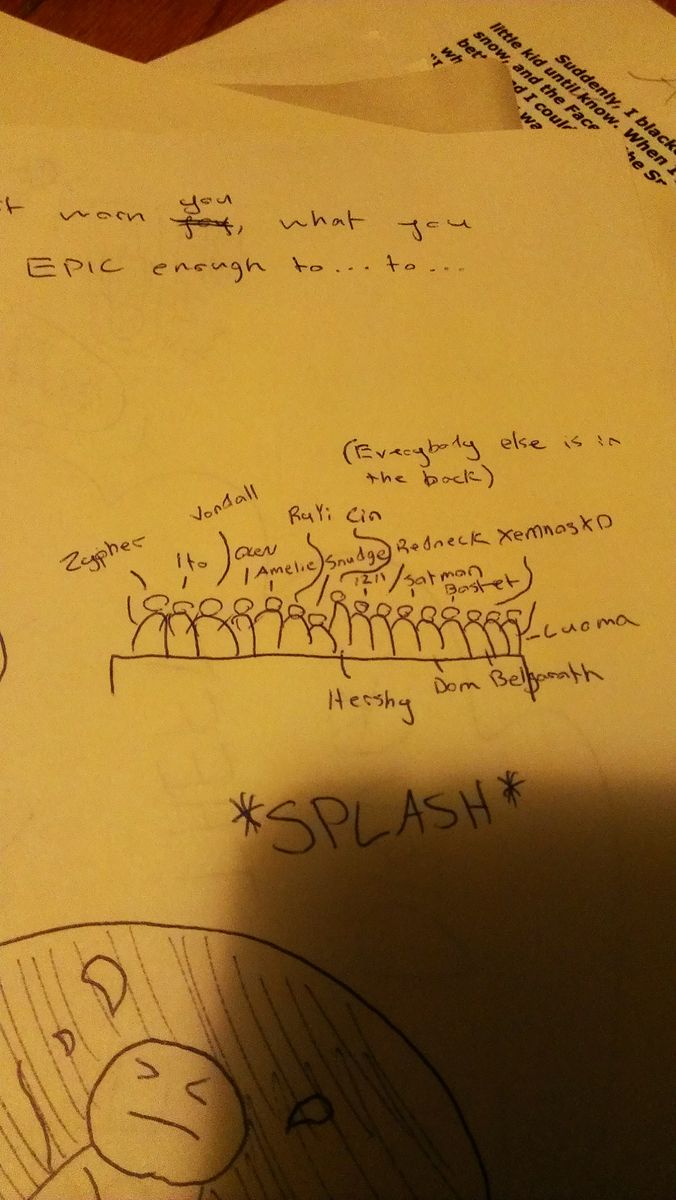 Suddenly, I black
little kid until know. When I
snow, and the Face
bet
d I could
he Sr
wh
wa
t warn you
you, what you
EPIC enough to... to...
(Everybody else is in
the back)
Vondall
RuYi Cin
Zypher Ito Owen Snudge Redneck XemnasXD
Amelie IZII Satman
Basket
Luoma
Hershy Dom Belgarath
*SPLASH*